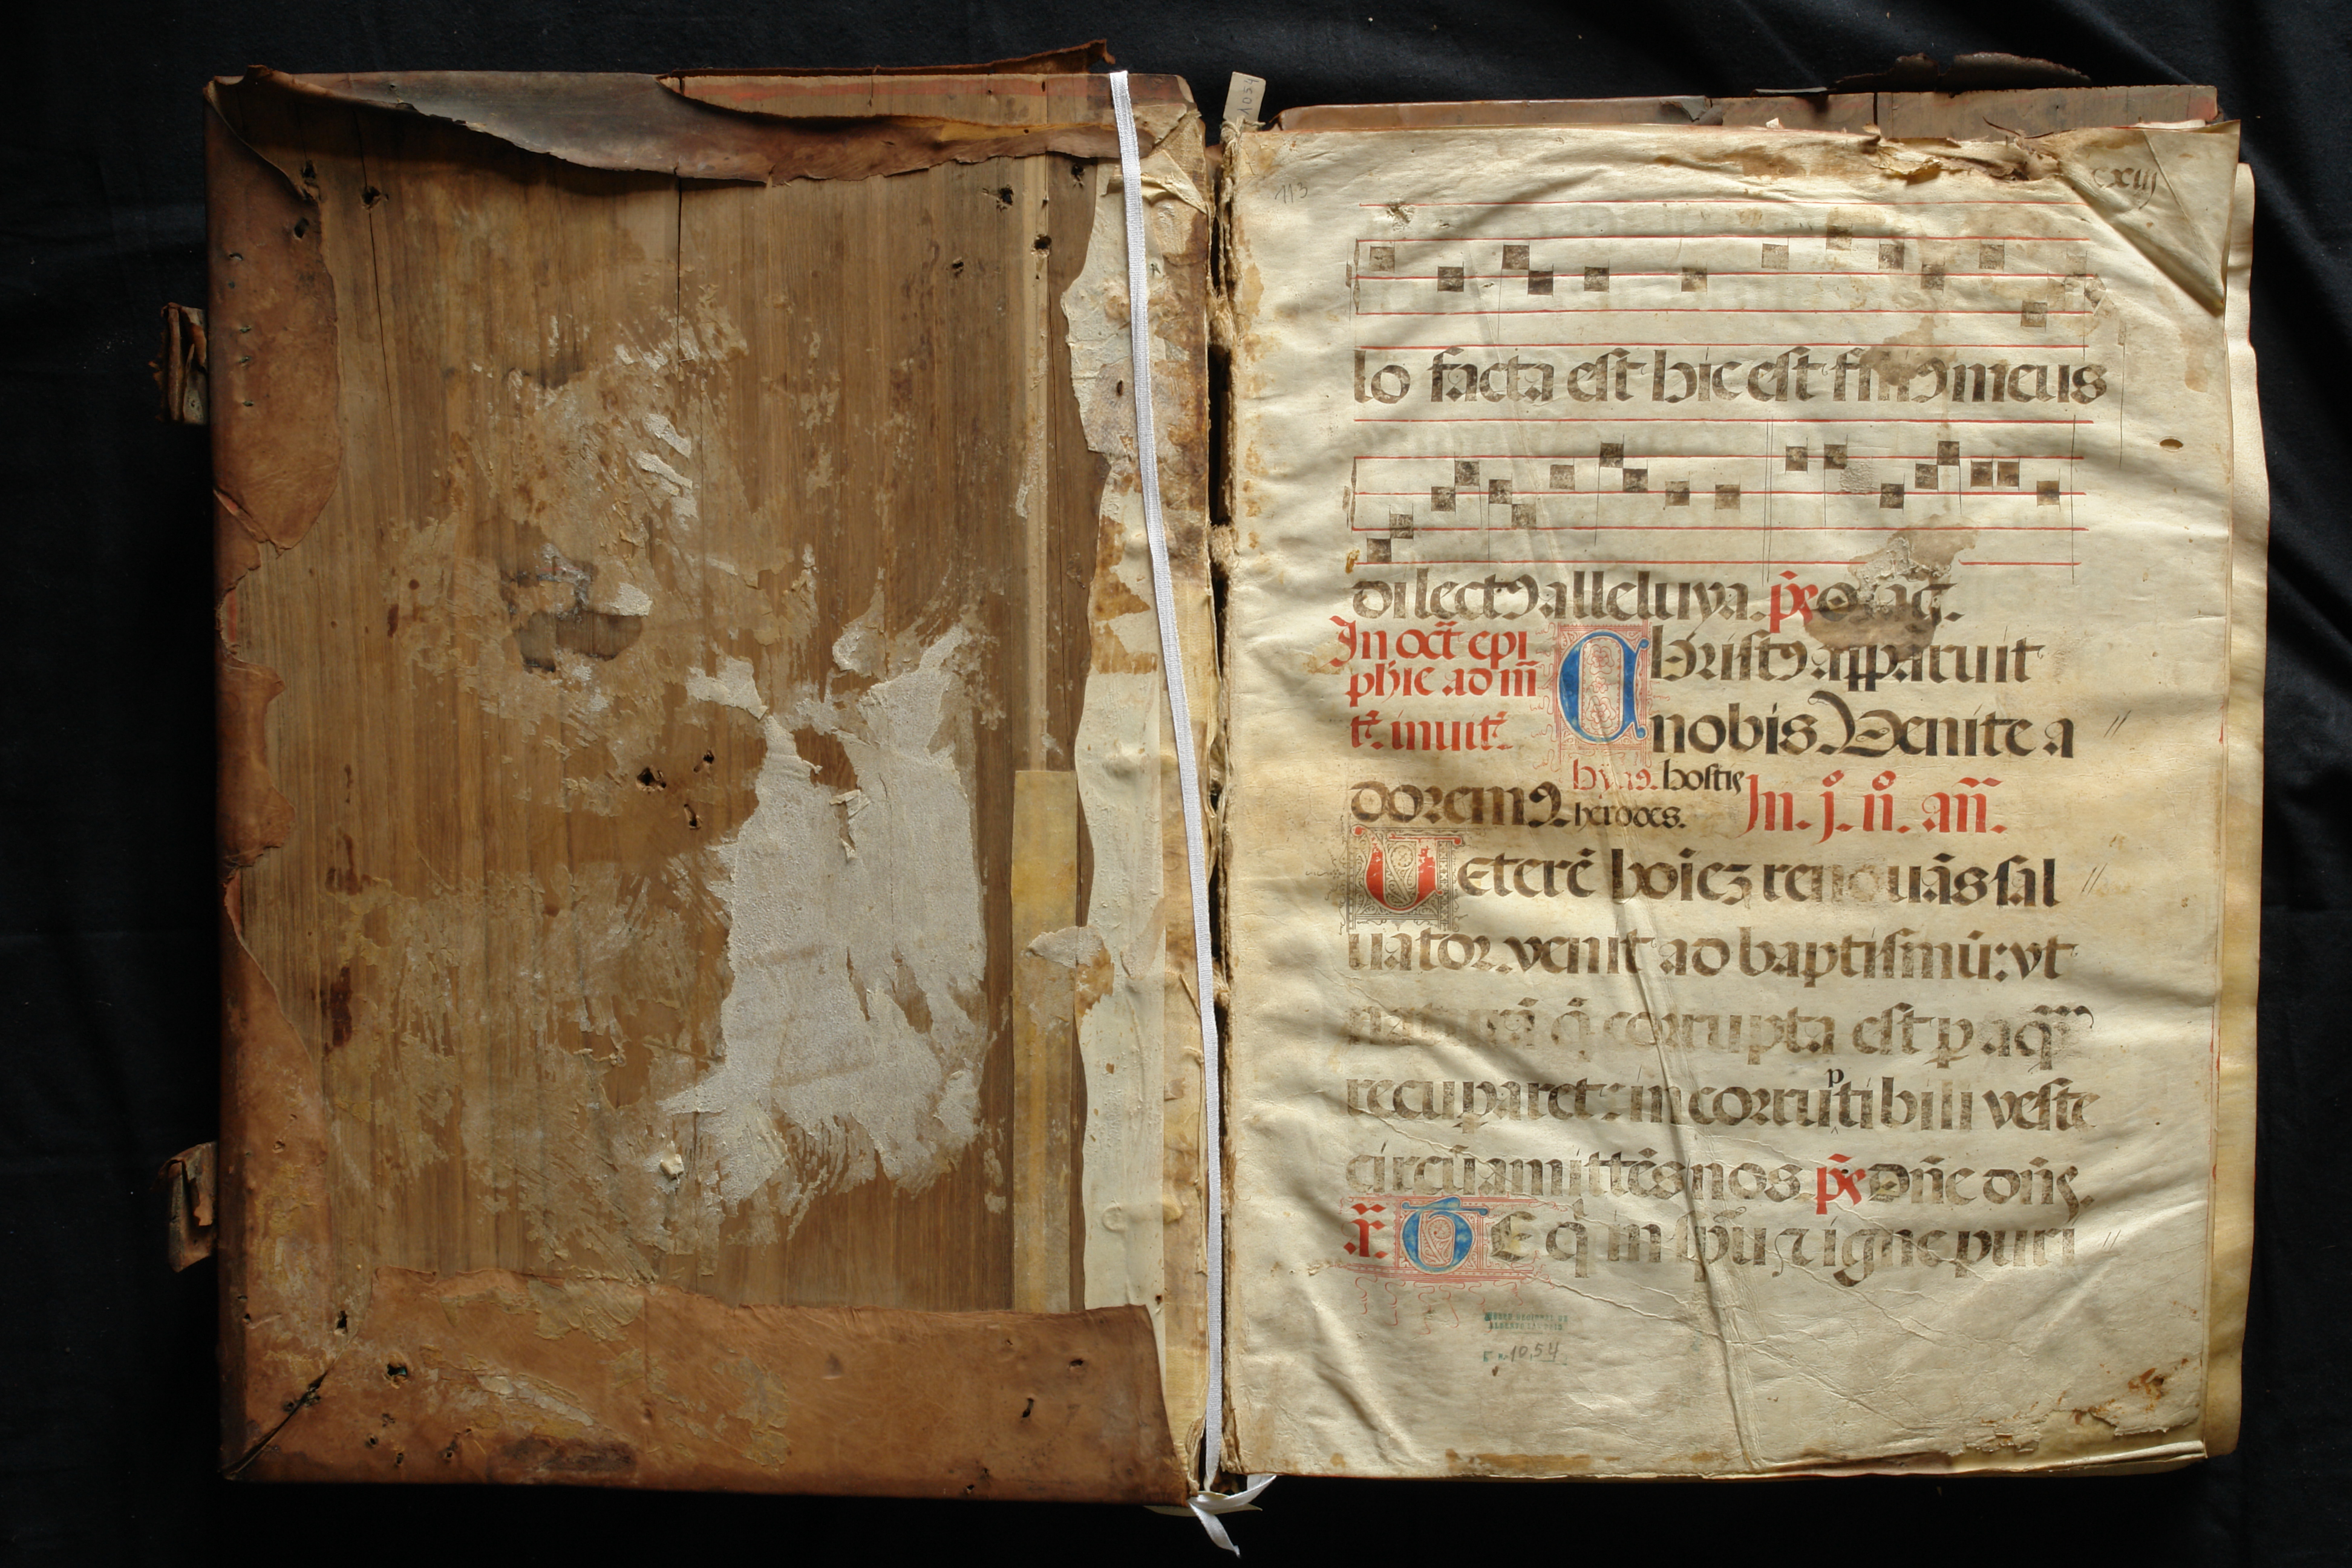 1054
113
cxiij
lo facta est hic est fili9 meus
dilect9 alleluya. p̃s
In oct̃ epi
phie ad m̃
t̃. inuit̃.
Christ9 apparuit
nobis. Venite a
dorem9
hym9. hostis
herodes.
In. j. n̊. añ.
Veterẽ hoĩez renouãs sal
uator. venit ad baptismũ: vt
naturã q̃ corrupta est p aq̃
recuparet: in corruptibili veste
circũamittẽs nos p̃s Dñe dñs.
TE q̃ in sp̃u ⁊ igne puri
MUSEO REGIONAL DE
10,54